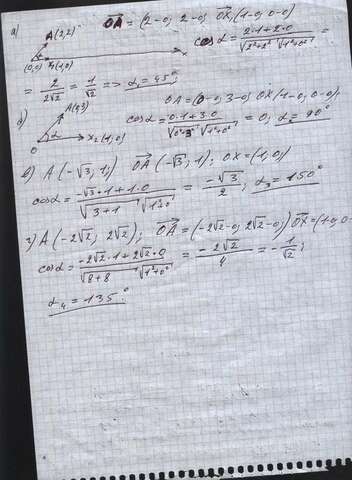 а) A(2,2) OA = (2-0; 2-0) OX, (1-0; 0-0)
(0,0) X₁(1,0) x cos α = 2·1+2·0 / √2²+2² √1²+0² =
= 2/2√2 = 1/√2 => α₁ = 45°
б) A(0,3) OA = (0-0, 3-0) OX(1-0, 0-0);
O α X₂(1,0) cos α = 0·1+3·0 / √0²+3² √1²+0² = 0; α = 90°
в) A(-√3, 1;) OA(-√3, 1); OX=(1,0)
cos α = -√3·1+1·0 / √3+1 √1²+0² = -√3/2; α₃ = 150°
г) A(-2√2; 2√2); OA = (-2√2-0; 2√2-0;) OX=(1-0, 0-0)
cos α = -2√2·1+2√2·0 / √8+8 √1²+0² = -2√2/4 = -1/√2;
α₄ = 135°.